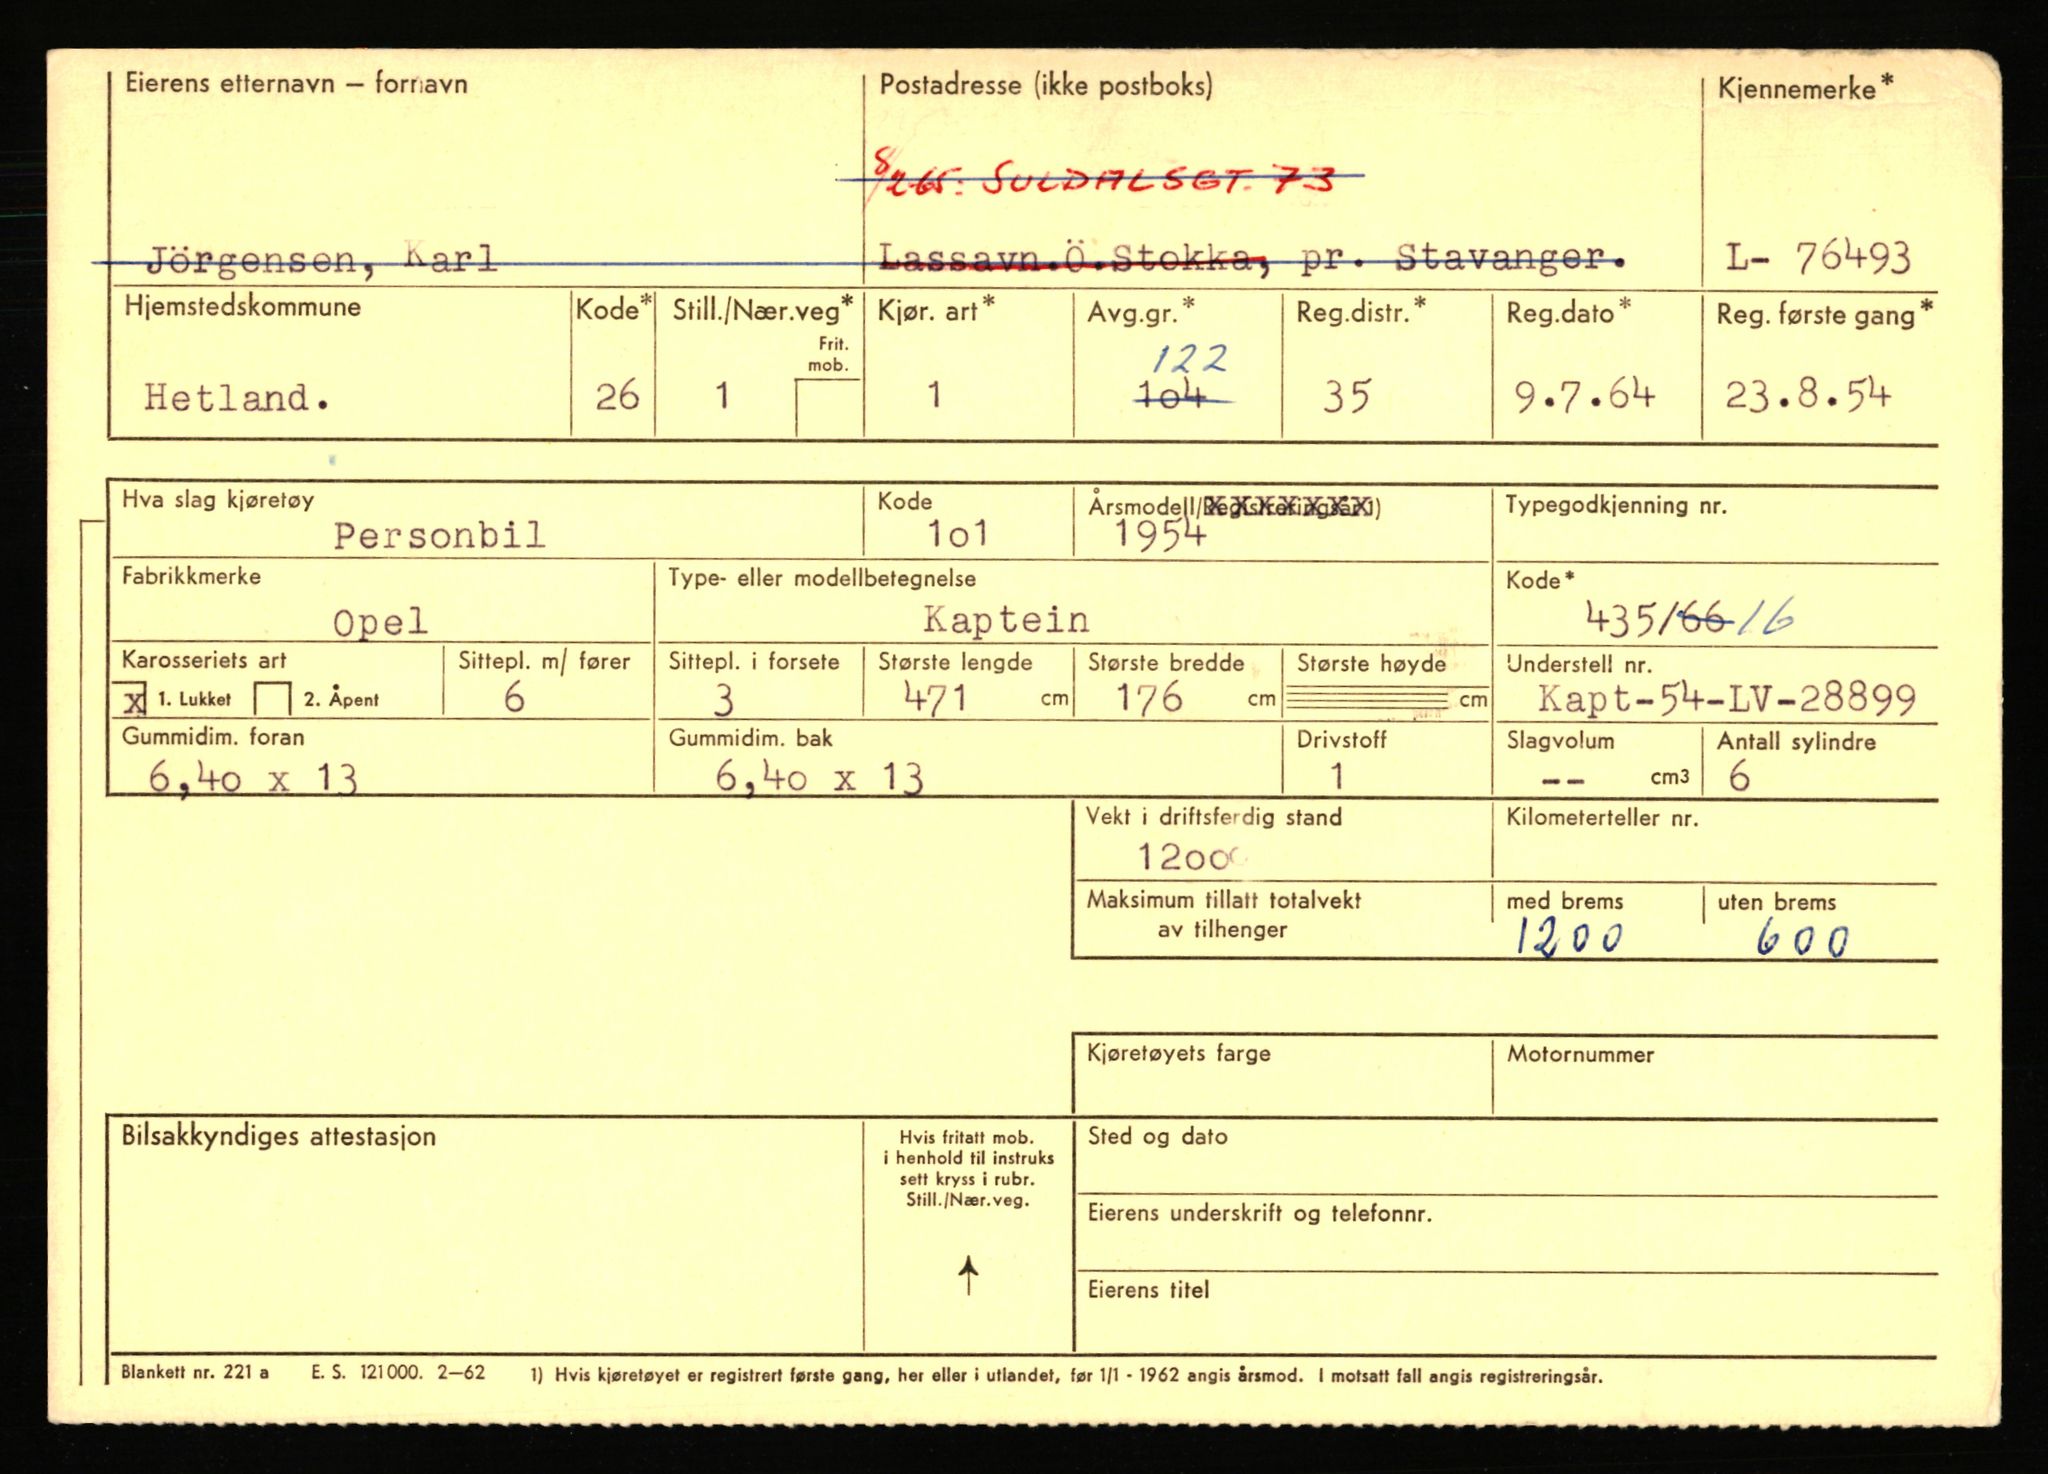 Eierens etternavn – fornavn Postadresse (ikke postboks) Kjennemerke*
8/2-65: SULDALSGT. 73
Jörgensen, Karl Lassavn.Ö.Stokka, pr. Stavanger. L- 76493
Hjemstedskommune Kode* Still./Nær.veg* Kjør. art* Avg.gr.* Reg.distr.* Reg.dato* Reg. første gang*
Frit.
mob.
122
Hetland. 26 1 1 1o4 35 9.7.64 23.8.54
Hva slag kjøretøy Kode Årsmodell/Registreringsår 1) Typegodkjenning nr.
Personbil 1o1 1954
Fabrikkmerke Type- eller modellbetegnelse Kode*
Opel Kaptein 435/66 16
Karosseriets art Sittepl. m/ fører Sittepl. i forsete Største lengde Største bredde Største høyde Understell nr.
x 1. Lukket 2. Åpent 6 3 471 cm 176 cm cm Kapt-54-LV-28899
Gummidim. foran Gummidim. bak Drivstoff Slagvolum Antall sylindre
6,4o x 13 6,4o x 13 1 -- cm3 6
Vekt i driftsferdig stand Kilometerteller nr.
12oo
Maksimum tillatt totalvekt med brems uten brems
av tilhenger 1200 600
Kjøretøyets farge Motornummer
Bilsakkyndiges attestasjon Hvis fritatt mob. Sted og dato
i henhold til instruks
sett kryss i rubr.
Still./Nær.veg.
Eierens underskrift og telefonnr.
Eierens titel
Blankett nr. 221 a E. S. 121000. 2–62 1) Hvis kjøretøyet er registrert første gang, her eller i utlandet, før 1/1 - 1962 angis årsmod. I motsatt fall angis registreringsår.